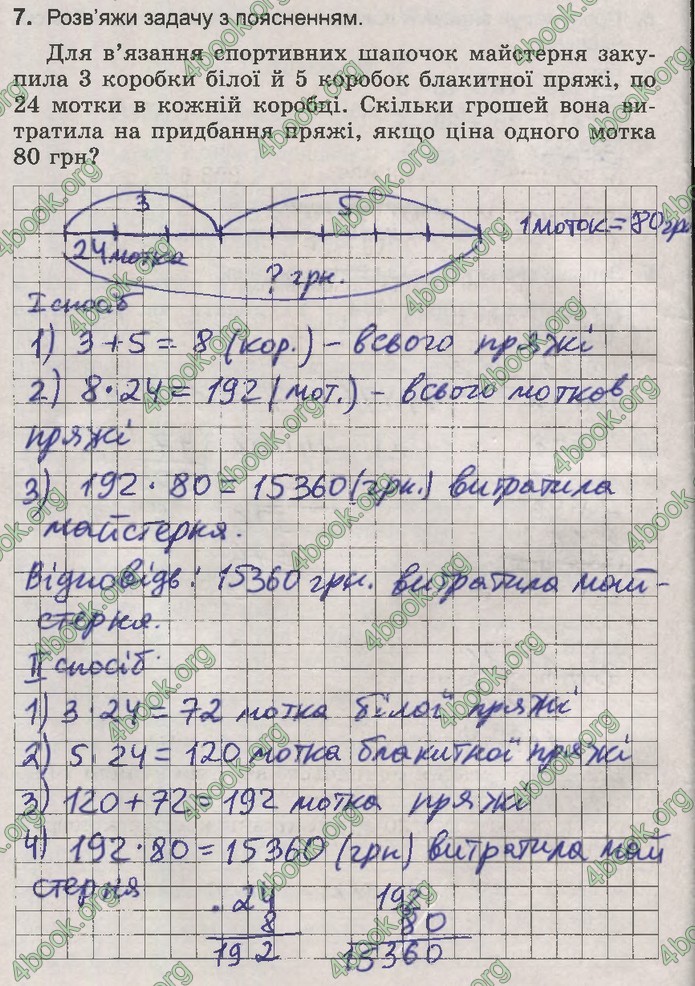 7. Розв'яжи задачу з поясненням.
Для в'язання спортивних шапочок майстерня заку-
пила 3 коробки білої й 5 коробок блакитної пряжі, по
24 мотки в кожній коробці. Скільки грошей вона ви-
тратила на придбання пряжі, якщо ціна одного мотка
80 грн?
3 5
1 моток = 80 грн
24 мотка
? грн.
I спосіб
1) 3 + 5 = 8 (кор.) - всього пряжі
2) 8 · 24 = 192 (мот.) - всього мотков
пряжі
3) 192 · 80 = 15360 (грн.) витратила
майстерня.
Відповідь: 15360 грн. витратила май-
стерня.
II спосіб
1) 3 · 24 = 72 мотка білої пряжі
2) 5 · 24 = 120 мотка блакитної пряжі
3) 120 + 72 = 192 мотка пряжі
4) 192 · 80 = 15360 (грн) витратила май
стерня
24 192
8 80
192 15360
4book.org